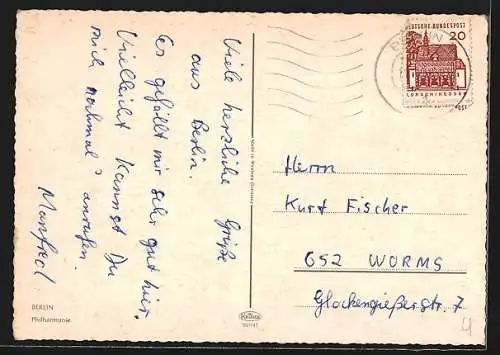 Viele herzliche Grüße
aus Berlin.
Es gefällt mir sehr gut hier.
Vielleicht kannst Du
mich nochmal anrufen.
Manfred
BERLIN
Philharmonie
Krüger
DEUTSCHE BUNDESPOST
20
LORSCH/HESSEN
BERLIN
Herrn
Kurt Fischer
652 WORMS
Glockengießerstr. 7
4